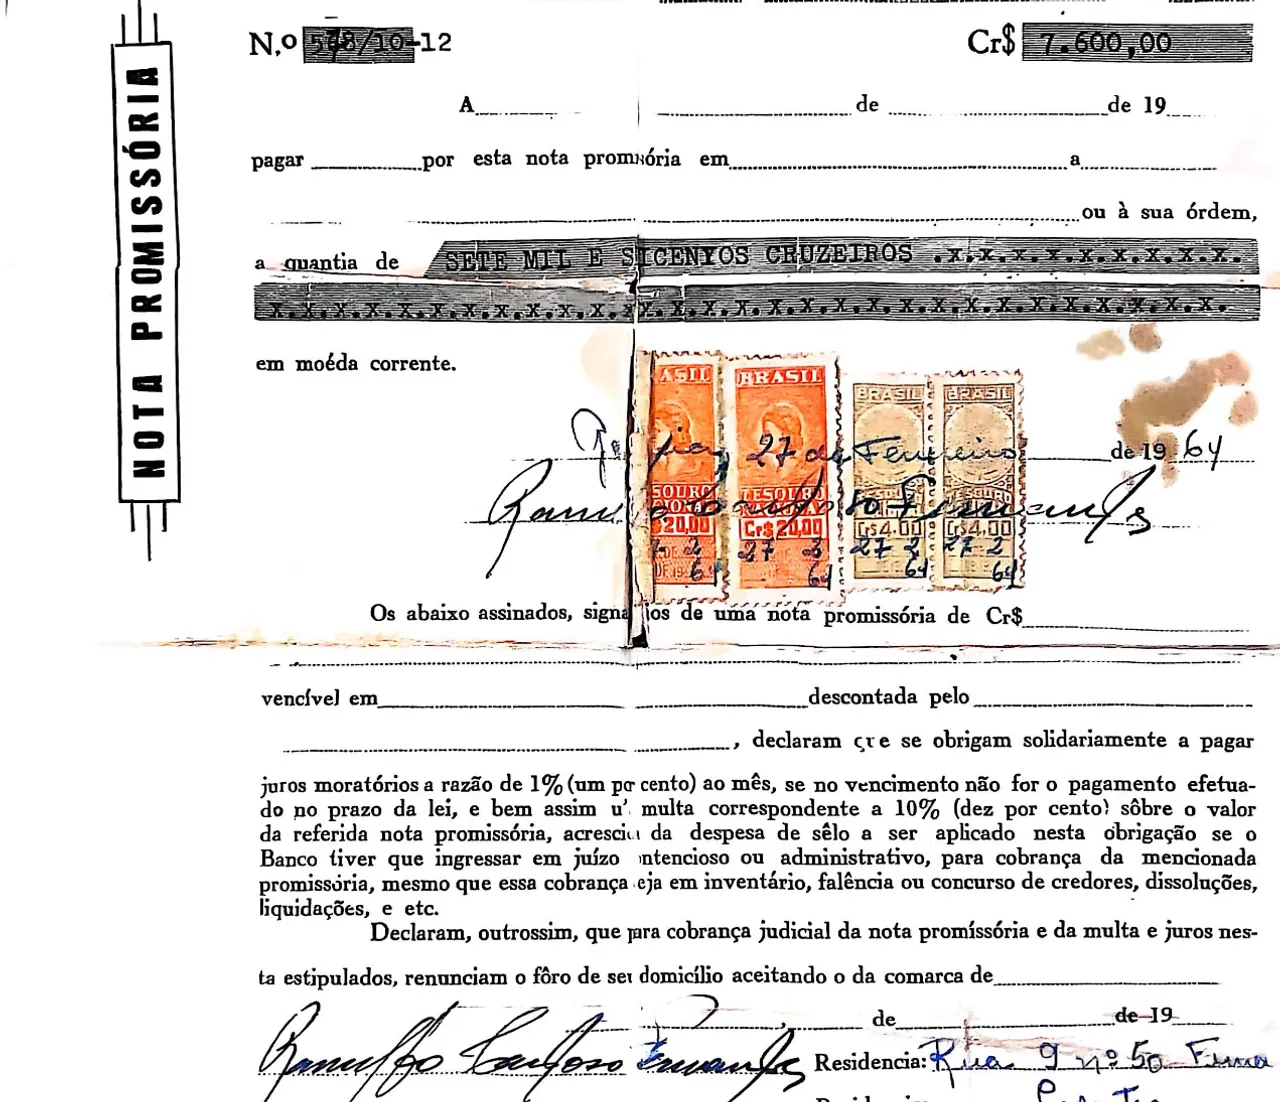 NOTA PROMISSÓRIA
N.º 578/10-12 Cr$ 7.600,00
A de de 19
pagar por esta nota promissória em a
ou à sua órdem,
a quantia de SETE MIL E SICENTOS CRUZEIROS .x.x.x.x.x.x.x.x.x.
x.x.x.x.x.x.x.x.x.x.x.x.x.x.x.x.x.x.x.x.x.x.x.x.x.x.x.x.x.x.
em moéda corrente.
ASIL BRASIL BRASIL BRASIL
27 de Fevereiro de 19 64
Ranulfo Cardoso Fernandes
SOURO TESOURO TESOURO TESOURO
$20,00 Cr$20,00 Cr$4,00 Cr$4,00
27 2 27 2 27 2
64 64 64 64
Os abaixo assinados, signa ios de uma nota promissória de Cr$
vencível em descontada pelo
, declaram que se obrigam solidariamente a pagar
juros moratórios a razão de 1% (um por cento) ao mês, se no vencimento não for o pagamento efetua-
do no prazo da lei, e bem assim u' multa correspondente a 10% (dez por cento) sôbre o valor
da referida nota promissória, acresci da despesa de sêlo a ser aplicado nesta obrigação se o
Banco tiver que ingressar em juízo ntencioso ou administrativo, para cobrança da mencionada
promissória, mesmo que essa cobrança eja em inventário, falência ou concurso de credores, dissoluções,
liquidações, e etc.
Declaram, outrossim, que para cobrança judicial da nota promíssória e da multa e juros nes-
ta estipulados, renunciam o fôro de seu domicílio aceitando o da comarca de
, de de 19
Ranulfo Cardoso Fernandes Residencia: Rua 9 nº 50